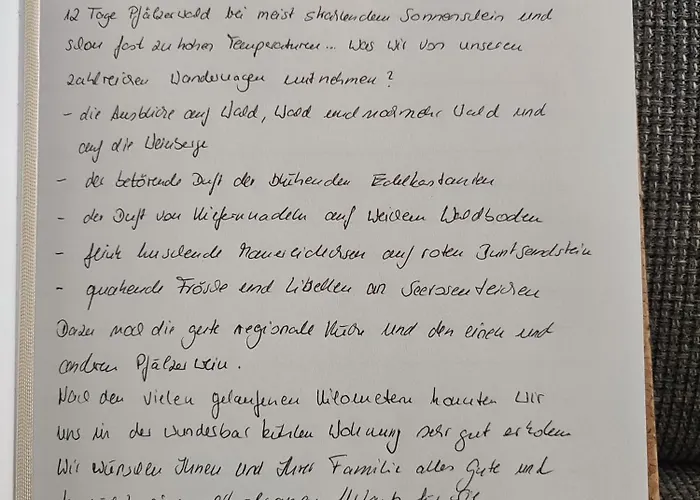 12 Tage Pfälzerwald bei meist strahlendem Sonnenschein und
schon fast zu hohen Temperaturen... Was wir von unseren
zahlreichen Wanderungen mitnehmen?
- die Ausblicke auf Wald, Wald und nochmehr Wald und
auf die Weinberge
- der betörende Duft der blühenden Edelkastanien
- der Duft von Kiefernnadeln auf weichem Waldboden
- flink huschende Mauereidechsen auf roten Buntsandstein
- quakende Frösche und Libellen an Seerosenteichen
Dazu noch die gute regionale Küche und den einen und
anderen Pfälzer Wein.
Nach den vielen gelaufenen Kilometern konnten wir
uns in der wunderbar kühlen Wohnung sehr gut erholen
Wir wünschen Ihnen und Ihrer Familie alles Gute und